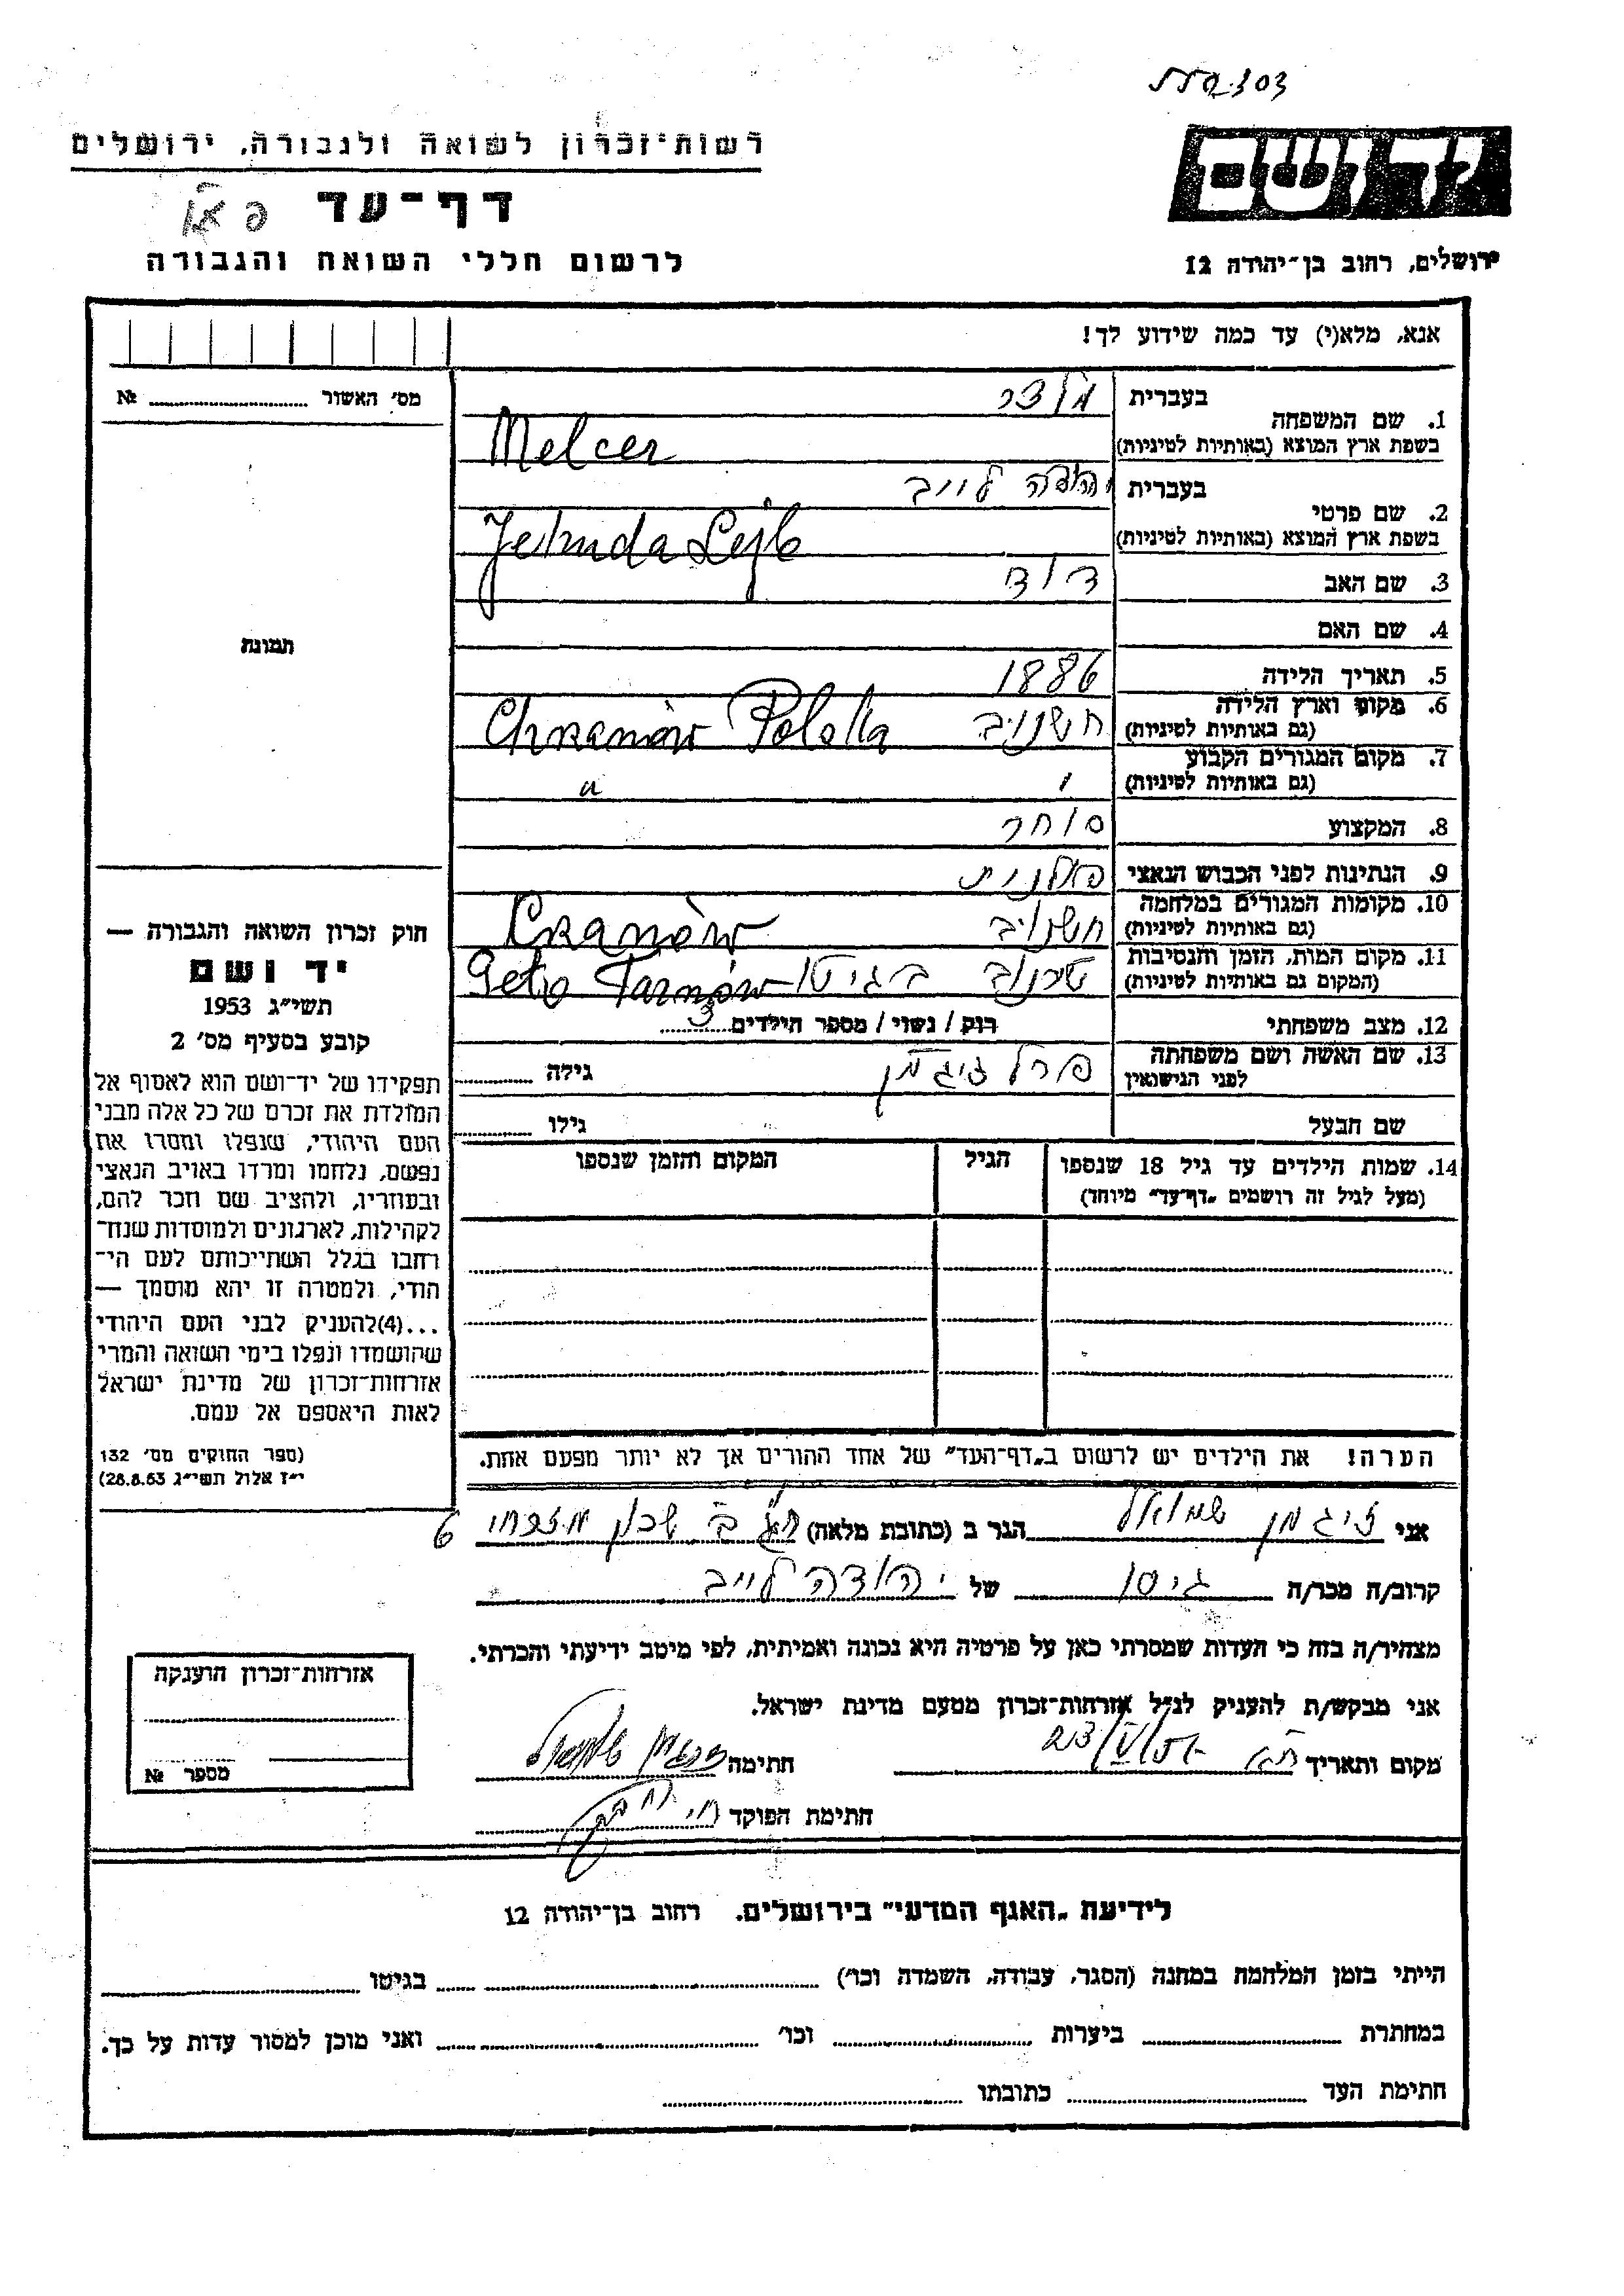 רשות־זכרון לשואה ולגבורה, ירושלים
יד ושם
דף־עד
לרשום חללי השואה והגבורה
ירושלים, רחוב בן־יהודה 12
אנא, מלא(י) עד כמה שידוע לך!
מס׳ האשור № 
1. שם המשפחה בעברית מלצר
בשפת ארץ המוצא (באותיות לטיניות) Melcer
2. שם פרטי בעברית יהודה לייב
בשפת ארץ המוצא (באותיות לטיניות) Jehuda Lejb
3. שם האב דוד
4. שם האם
5. תאריך הלידה 1886
6. מקום וארץ הלידה (גם באותיות לטיניות) חשנוב Chrzanów Polska
7. מקום המגורים הקבוע (גם באותיות לטיניות) " "
8. המקצוע סוחר
9. הנתינות לפני הכבוש הנאצי פולנית
10. מקומות המגורים במלחמה (גם באותיות לטיניות) חשנוב Czanów
11. מקום המות, הזמן והנסיבות (המקום גם באותיות לטיניות) טרנוב בגיטו Geto Tarnów
12. מצב משפחתי רוק / נשוי / מספר הילדים 3
13. שם האשה ושם משפחתה לפני הנישואין פרל זיגמן גילה
שם הבעל גילו
14. שמות הילדים עד גיל 18 שנספו הגיל המקום והזמן שנספו
(מעל לגיל זה רושמים „דף־עד״ מיוחד)
הערה! את הילדים יש לרשום ב„דף־העד״ של אחד ההורים אך לא יותר מפעם אחת.
תמונה
חוק זכרון השואה והגבורה —
יד ושם
תשי״ג 1953
קובע בסעיף מס׳ 2
תפקידו של יד־ושם הוא לאסוף אל
המולדת את זכרם של כל אלה מבני
העם היהודי, שנפלו ומסרו את
נפשם, נלחמו ומרדו באויב הנאצי
ובעוזריו, ולהציב שם וזכר להם,
לקהילות, לארגונים ולמוסדות שנח־
רחבו בגלל השתייכותם לעם הי־
הודי, ולמטרה זו יהא מוסמך —
...(4)להעניק לבני העם היהודי
שהושמדו ונפלו בימי השואה והמרי
אזרחות־זכרון של מדינת ישראל
לאות היאספם אל עמם.
(ספר החוקים מס׳ 132
י״ז אלול תשי״ג 28.8.53)
אני זיגמן שמואל הגר ב (כתובת מלאה) ת״א שכון מזרחי 6
קרוב/ה מכר/ה גיסו של יהודה לייב
מצהיר/ה בזה כי העדות שמסרתי כאן על פרטיה היא נכונה ואמיתית, לפי מיטב ידיעתי והכרתי.
אני מבקש/ת להעניק לנ״ל אזרחות־זכרון מטעם מדינת ישראל.
מקום ותאריך ת״א חתימה זיגמן שמואל
חתימת הפוקד
אזרחות־זכרון הוענקה
מספר №
לידיעת „האגף המדעי״ בירושלים. רחוב בן־יהודה 12
הייתי בזמן המלחמה במחנה (הסגר, עבודה, השמדה וכו׳) בגיטו
במחתרת ביערות וכו׳ ואני מוכן למסור עדות על כך.
חתימת העד כתובתו